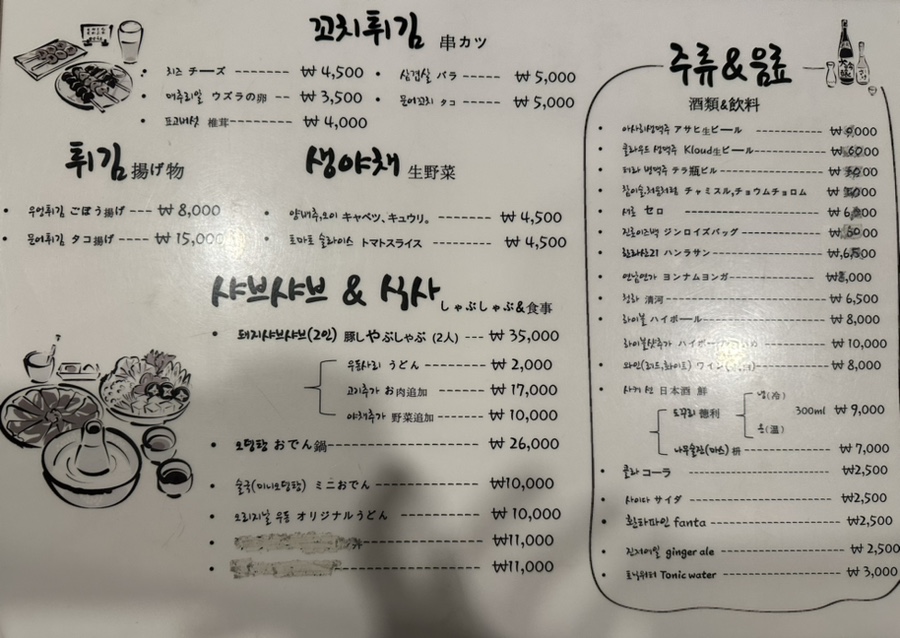 꼬치튀김 串カツ
치즈 チーズ -------- ₩ 4,500
삼겹살 バラ ------- ₩ 5,000
메추리알 ウズラの卵 -- ₩ 3,500
문어꼬치 タコ ------- ₩ 5,000
표고버섯 椎茸 ------- ₩ 4,000
튀김 揚げ物
우엉튀김 ごぼう揚げ --- ₩ 8,000
문어튀김 タコ揚げ ---- ₩ 15,000
생야채 生野菜
양배추,오이 キャベツ、キュウリ。 ------- ₩ 4,500
토마토 슬라이스 トマトスライス ------- ₩ 4,500
샤브샤브 & 식사 しゃぶしゃぶ&食事
돼지샤브샤브(2인) 豚しやぶしゃぶ (2人) --- ₩ 35,000
우동사리 うどん ------- ₩ 2,000
고기추가 お肉追加 ------- ₩ 17,000
야채추가 野菜追加 ------- ₩ 10,000
오뎅탕 おでん鍋 ------- ₩ 26,000
술국(미니오뎅탕) ミニおでん ------- ₩10,000
오리지날 우동 オリジナルうどん ------- ₩ 10,000
₩11,000
₩11,000
주류&음료
酒類&飲料
아사히생맥주 アサヒ生ビール
클라우드 생맥주 Kloud生ビール
테라 병맥주 テラ瓶ビル
참이슬,처음처럼 チャミスル,チョウムチョロム
서로 セロ
진로이즈백 ジンロイズバッグ
한라산21 ハンラサン
연남연가 ヨンナムヨンガ
청하 清河 ------- ₩ 6,500
하이볼 ハイボール ------- ₩ 8,000
하이볼샷추가 ------- ₩ 10,000
와인(레드,화이트) ワイン ------- ₩ 8,000
사케 선 日本酒 鮮
냉(冷)
도쿠리 徳利 300ml ₩ 9,000
온(温)
나무술잔(마스) 枡 ------- ₩ 7,000
콜라 コーラ ------- ₩2,500
사이다 サイダ ------- ₩2,500
환타파인 fanta ------- ₩2,500
진저에일 ginger ale ------- ₩ 2,500
토닉워터 Tonic water ------- ₩ 3,000